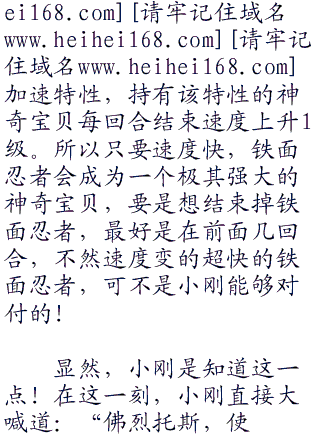 ei168.com][请牢记住域名
www.heihei168.com][请牢记
住域名www.heihei168.com]
加速特性，持有该特性的神
奇宝贝每回合结束速度上升1
级。所以只要速度快，铁面
忍者会成为一个极其强大的
神奇宝贝，要是想结束掉铁
面忍者，最好是在前面几回
合，不然速度变的超快的铁
面忍者，可不是小刚能够对
付的！
显然，小刚是知道这一
点！在这一刻，小刚直接大
喊道：“佛烈托斯，使